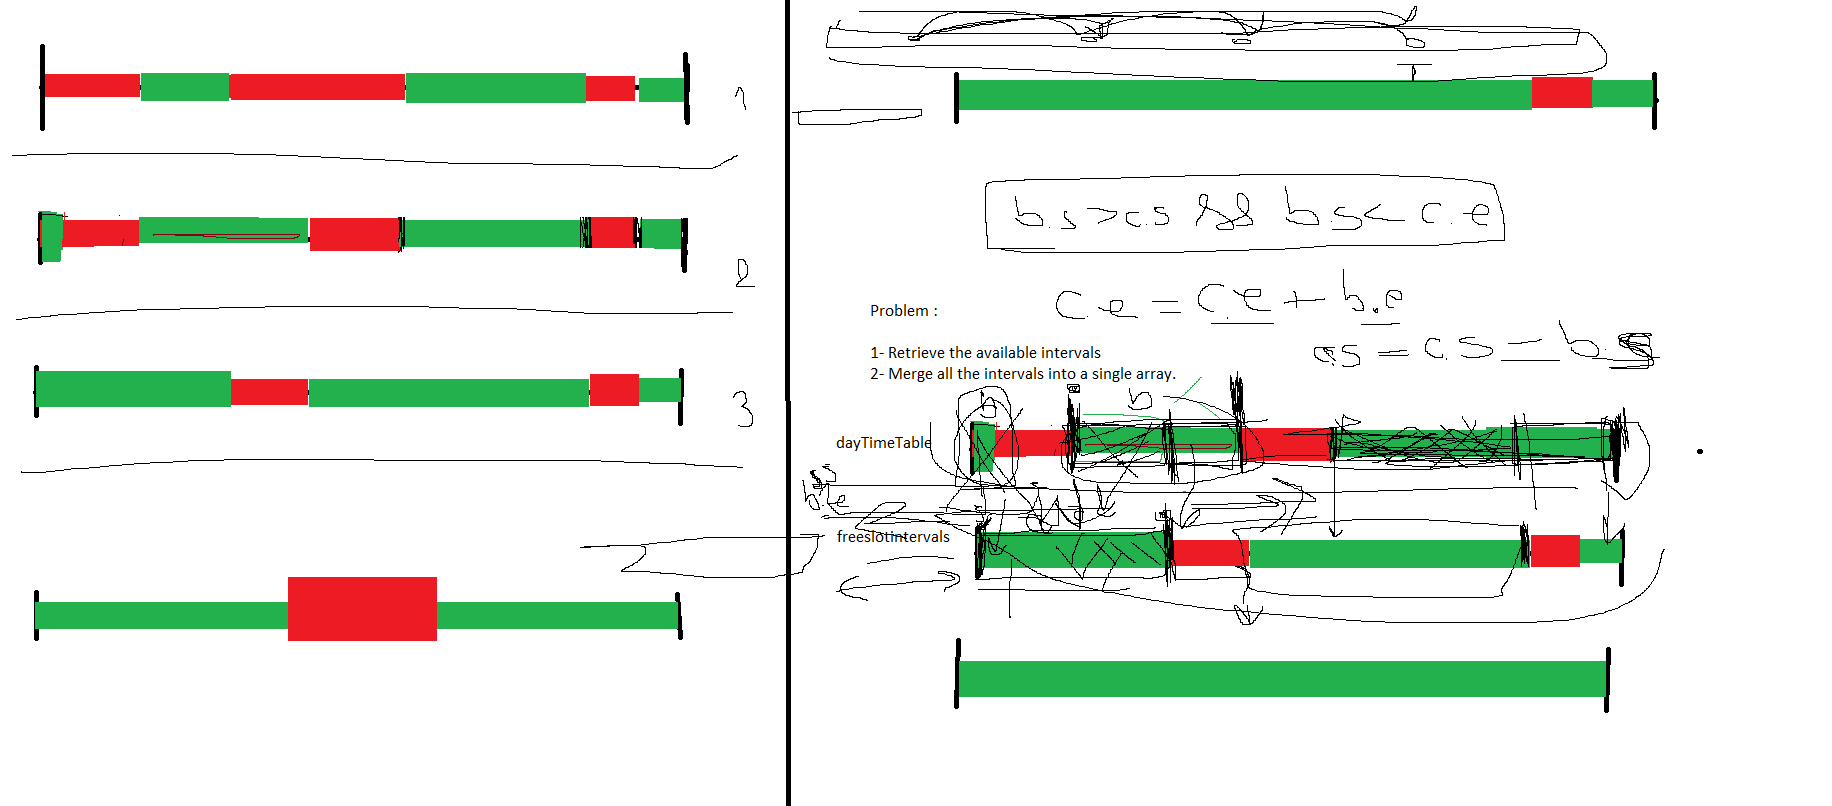 1
2
3
b.s > c.s && b.s <= c.e
Problem :
c.e = c.e + b.e
1- Retrieve the available intervals
2- Merge all the intervals into a single array.
b
b
dayTimeTable
b.e
freeslotintervals